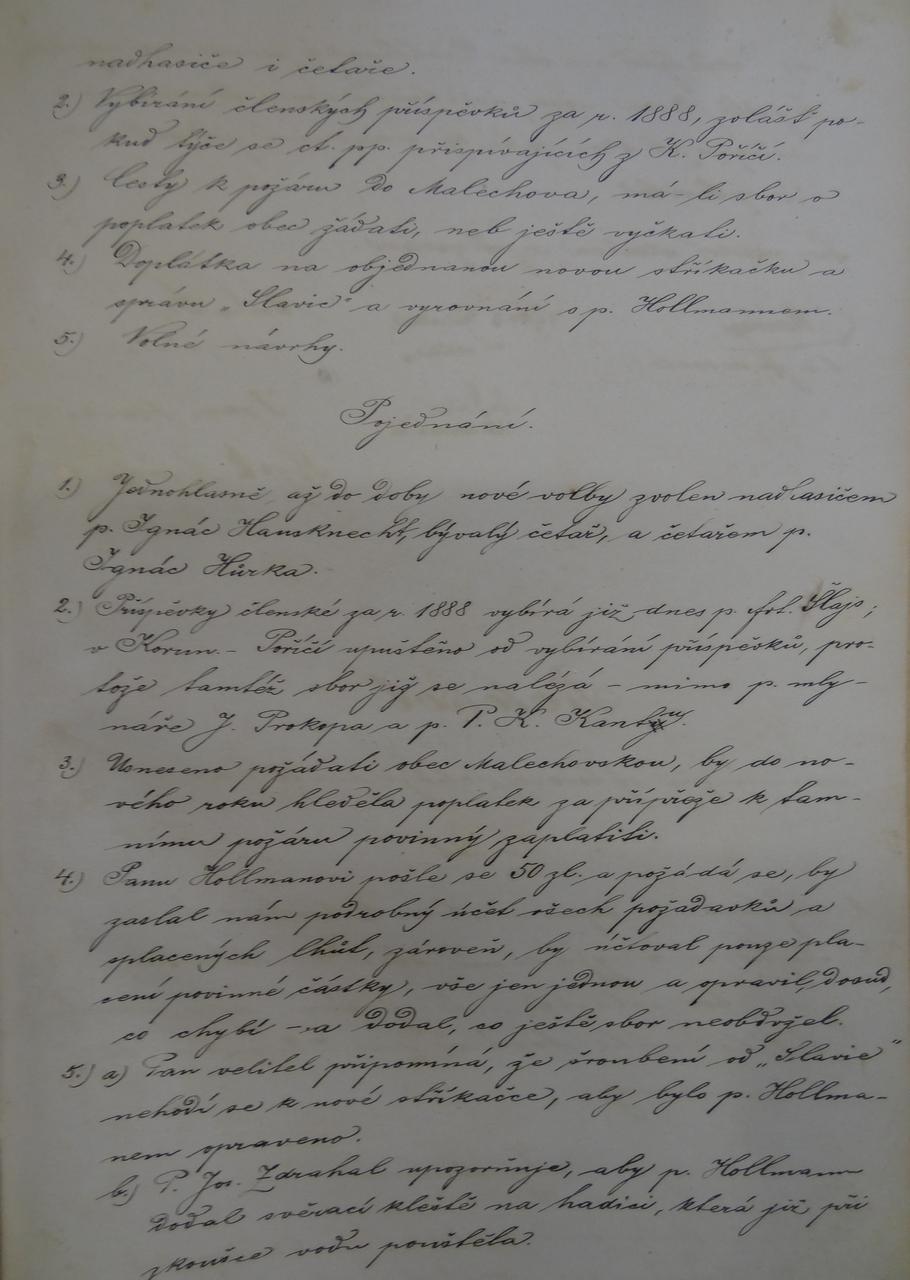 nadhasiče i četaře.
2.) Vybírání členských příspěvků za r. 1888, zvlášť po-
kud týče se ct. pp. přispívajících z K. Poříčí.
3.) Cesty k požáru do Malechova, má-li sbor o
poplatek obec žádati, neb ještě vyčkati.
4.) Doplátka na objednanou novou stříkačku a
správu „Slavie" a vyrovnání s p. Hollmannem.
5.) Volné návrhy.
Pojednání.
1.) Jednohlasně až do doby nové volby zvolen nadhasičem
p. Ignác Hausknecht, bývalý četař, a četařem p.
Ignác Hůrka.
2.) Příspěvky členské za r. 1888 vybírá již dnes p. Ant. Šlajs;
v Korun. - Poříčí upuštěno od vybírání příspěvků, pro-
tože tamtéž sbor již se nalézá - mimo p. mly-
náře J. Prokopa a p. P. K.
3.) Usneseno požádati obec Malechovskou, by do no-
vého roku hleděla poplatek za přípřeže k tam-
nímu požáru povinný zaplatiti.
4.) Panu Hollmanovi pošle se 50 zl. a požádá se, by
zaslal nám podrobný účet všech požadavků a
splacených lhůt, zároveň, by účtoval pouze pla-
cení povinné částky, vše jen jednou a opravil, dosud,
co chybí - a dodal, co ještě sbor neobdržel.
5.) a) Pan velitel připomíná, že šroubení od „Slavie"
nehodí se k nové stříkačce, aby bylo p. Hollma-
nem opraveno.
b.) P. Jos. Zdrahal upozorňuje, aby p. Hollmann
dodal svěrací kleště na hadici, která již při
zkoušce vodu pouštěla.